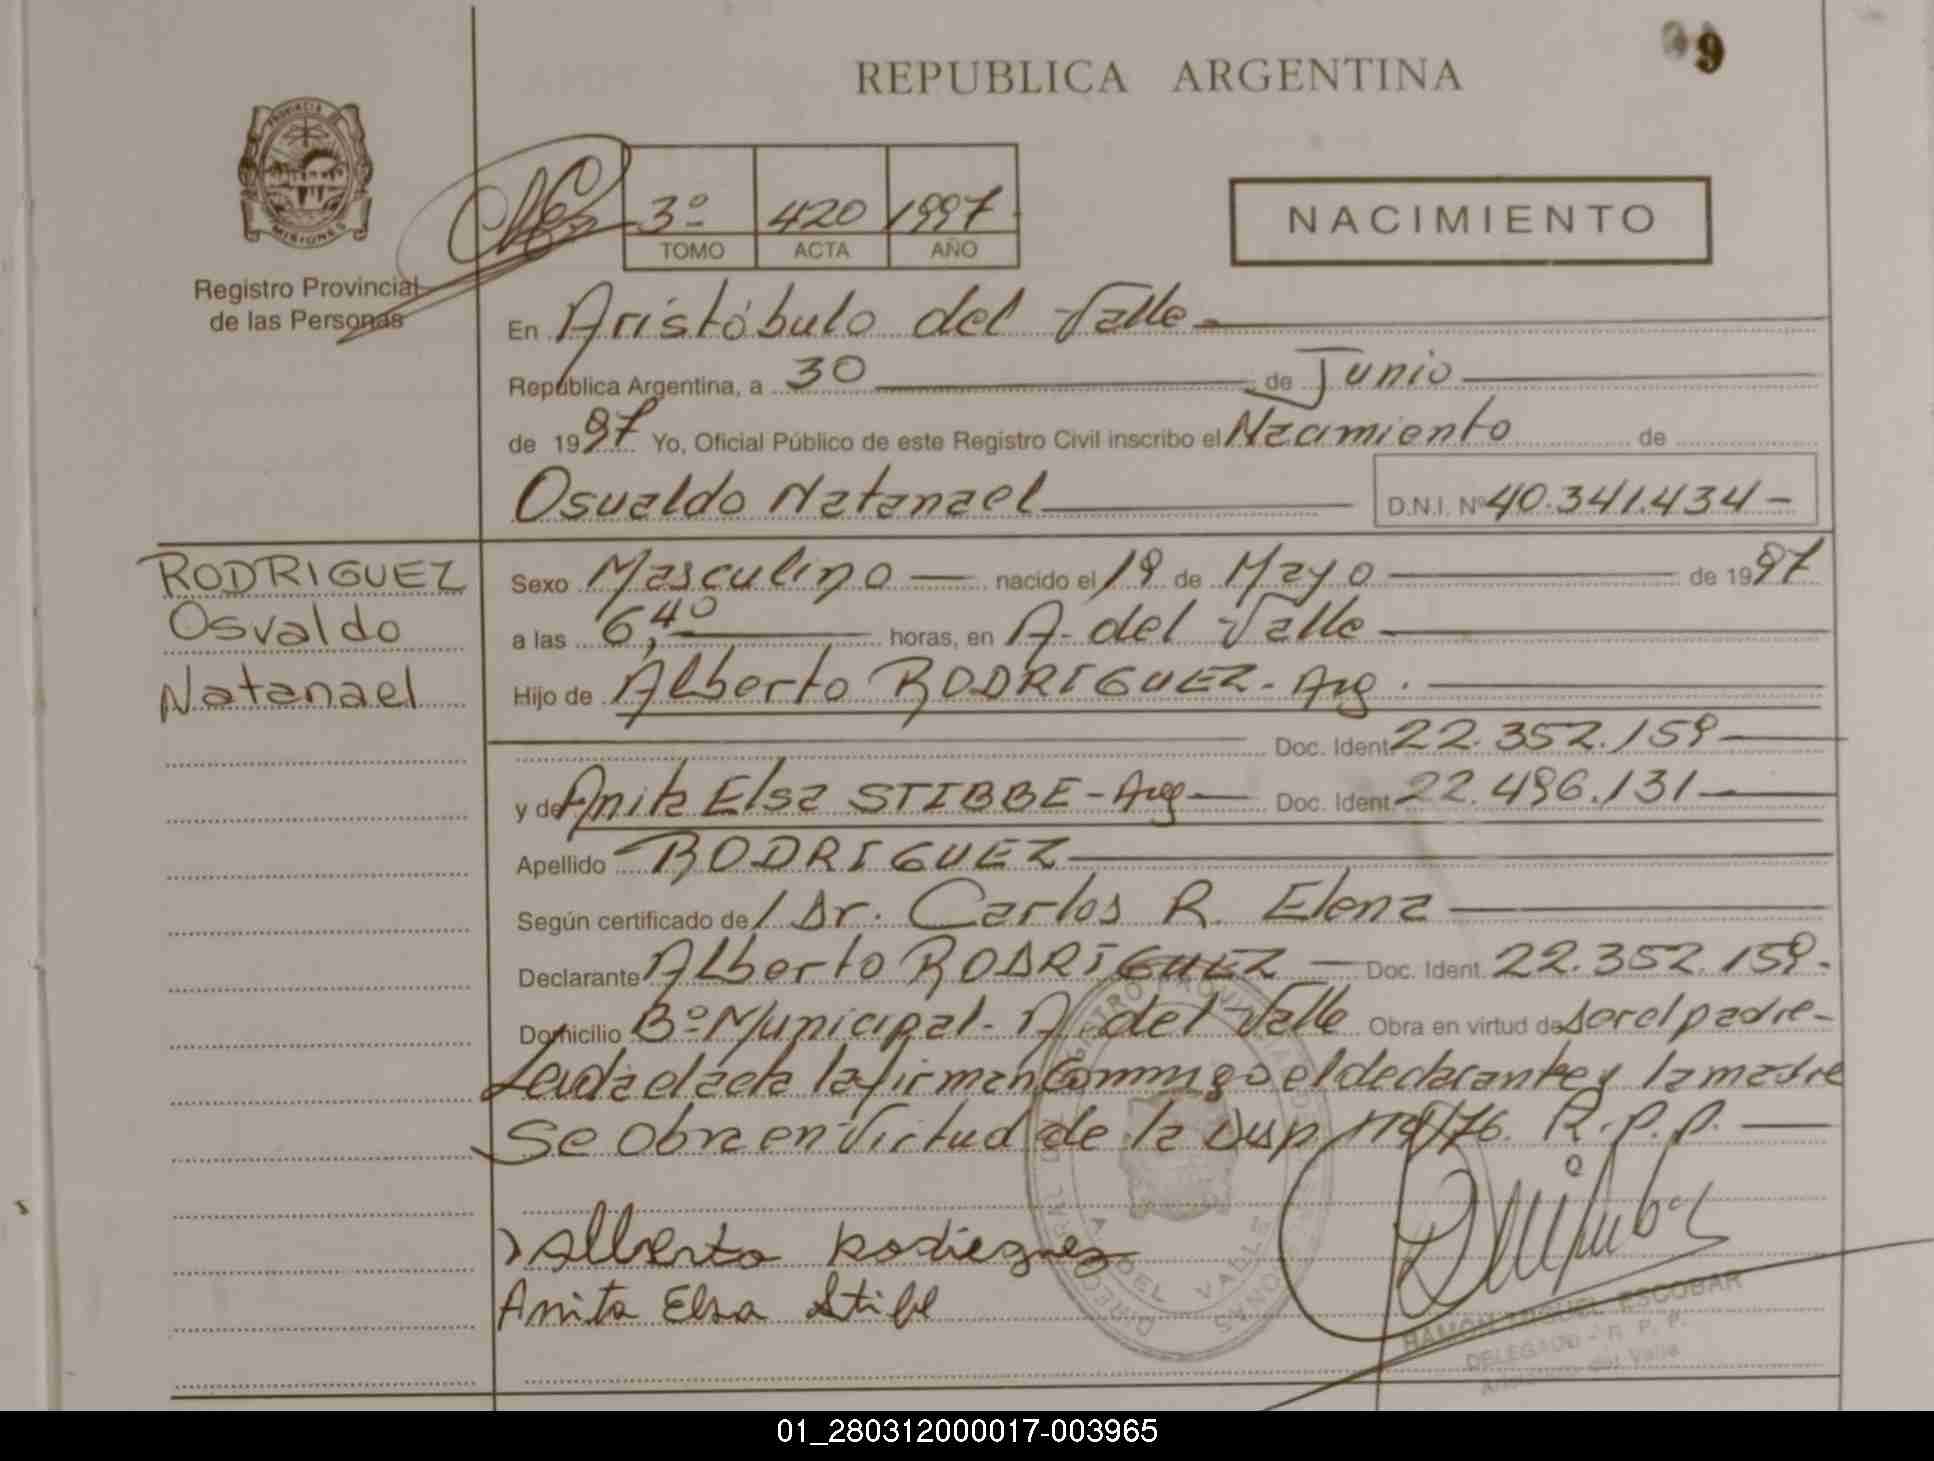 9
REPUBLICA ARGENTINA
PROVINCIA DE
MISIONES
Registro Provincial
de las Personas
3º 420 1997
TOMO ACTA AÑO
NACIMIENTO
En Aristóbulo del Valle
República Argentina, a 30 de Junio
de 1997 Yo, Oficial Público de este Registro Civil inscribo el Nacimiento de
Osvaldo Natanael D.N.I. Nº 40.341.434
RODRIGUEZ
Osvaldo
Natanael
Sexo Masculino nacido el 19 de Mayo de 1997
a las 6,40 horas, en A. del Valle
Hijo de Alberto RODRIGUEZ - Arg.
Doc. Ident. 22.352.159
y de Anita Elsa STIBBE - Arg Doc. Ident. 22.496.131
Apellido RODRIGUEZ
Según certificado de Dr. Carlos R. Elena
Declarante Alberto RODRIGUEZ Doc. Ident. 22.352.159.
Domicilio Bº Municipal - A. del Valle Obra en virtud de ser el padre
Leida el acta la firman conmigo el declarante y la madre
Se obra en virtud de la Disp. 176. R.P.P.
Alberto Rodriguez
Anita Elsa Stibe
A. DEL VALLE
RAMON MIGUEL ESCOBAR
DELEGADO - R. P. P.
Aristóbulo del Valle
01_280312000017-003965